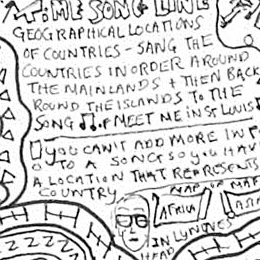 TIME SONG LINE
GEOGRAPHICAL LOCATIONS
OF COUNTRIES - SANG THE
COUNTRIES IN ORDER AROUND
THE MAINLANDS + THEN BACK
ROUND THE ISLANDS TO THE
SONG ♫ MEET ME IN ST LOUIS
YOU CAN'T ADD MORE IN
TO A SONG SO YOU HAV
A LOCATION THAT REPRESENTS
COUNTRY
MAP MAP
AFRICA
IN LYNNES
HEAD
ZZZZZ